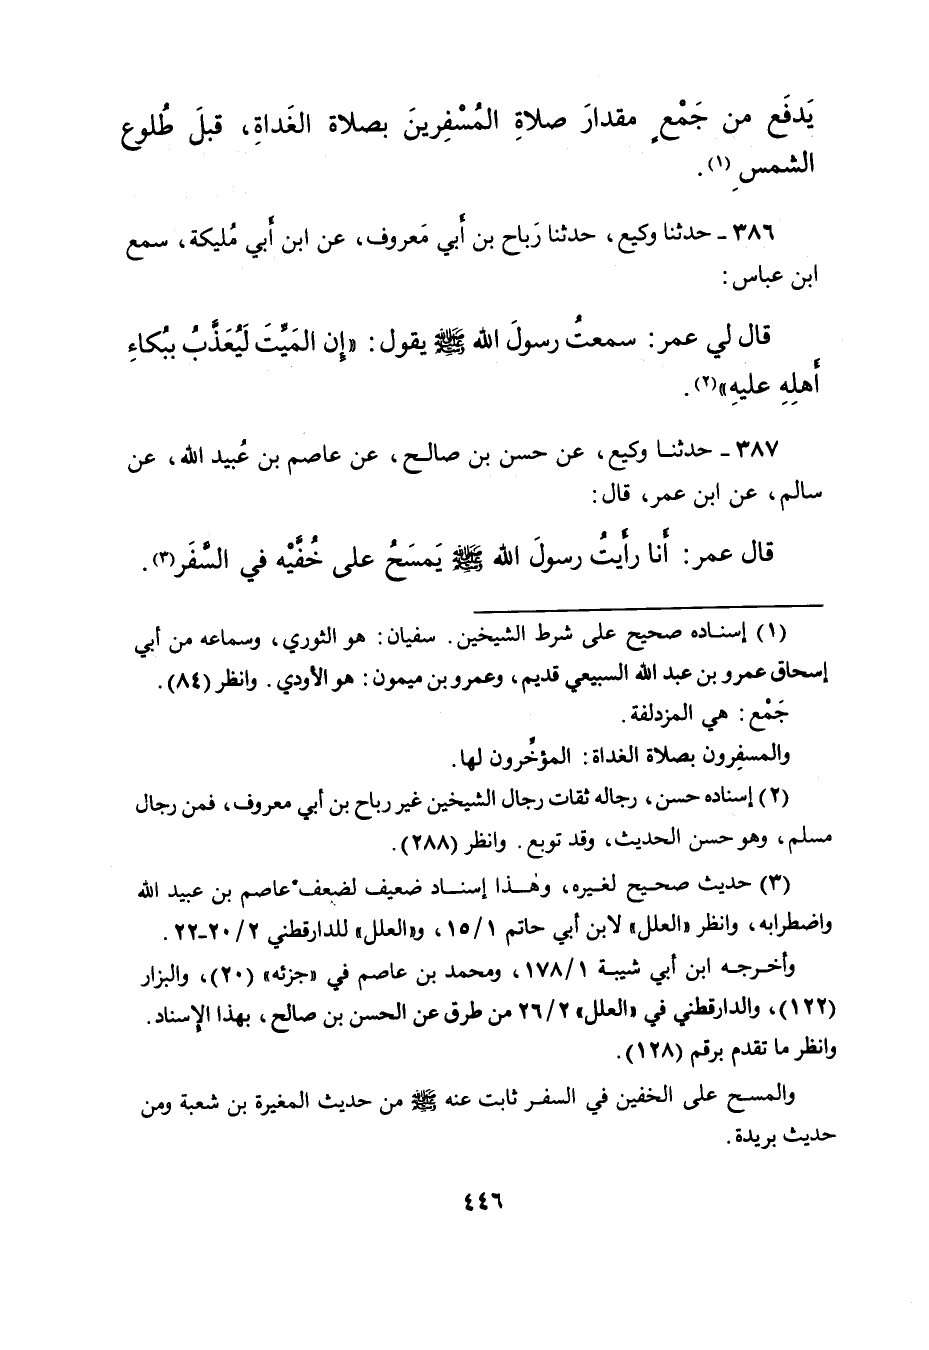 يَدفَع من جَمْعٍ مقدارَ صلاةِ المُسْفِرينَ بصلاة الغَداةِ، قبلَ طُلوع
الشمسِ(١).
٣٨٦ - حدثنا وكيع، حدثنا رَباح بن أَبي مَعروف، عن ابن أَبي مُليكة، سمع
ابن عباس:
قال لي عمر: سمعتُ رسولَ الله ﷺ يقول: «إِن المَيِّتَ لَيُعَذَّبُ بِبُكاءِ
أَهلِهِ عليهِ»(٢).
٣٨٧ - حدثنا وكيع، عن حسن بن صالح، عن عاصم بن عُبيد الله، عن
سالم، عن ابن عمر، قال:
قال عمر: أَنا رأَيتُ رسولَ الله ﷺ يَمسَحُ على خُفَّيْه في السَّفَر(٣).
(١) إسناده صحيح على شرط الشيخين. سفيان: هو الثوري، وسماعه من أبي
إسحاق عمرو بن عبد الله السبيعي قديم، وعمرو بن ميمون: هو الأودي. وانظر (٨٤).
جَمْع: هي المزدلفة.
والمسفِرون بصلاة الغداة: المؤخِّرون لها.
(٢) إسناده حسن، رجاله ثقات رجال الشيخين غير رباح بن أبي معروف، فمن رجال
مسلم، وهو حسن الحديث، وقد توبع. وانظر (٢٨٨).
(٣) حديث صحيح لغيره، وهٰذا إسناد ضعيف لضعف عاصم بن عبيد الله
واضطرابه، وانظر «العلل» لابن أبي حاتم ١/١٥، و«العلل» للدارقطني ٢/٢٠-٢٢.
وأخرجه ابن أبي شيبة ١/١٧٨، ومحمد بن عاصم في «جزئه» (٢٠)، والبزار
(١٢٢)، والدارقطني في «العلل» ٢/٢٦ من طرق عن الحسن بن صالح، بهذا الإسناد.
وانظر ما تقدم برقم (١٢٨).
والمسح على الخفين في السفر ثابت عنه ﷺ من حديث المغيرة بن شعبة ومن
حديث بريدة.
٤٤٦